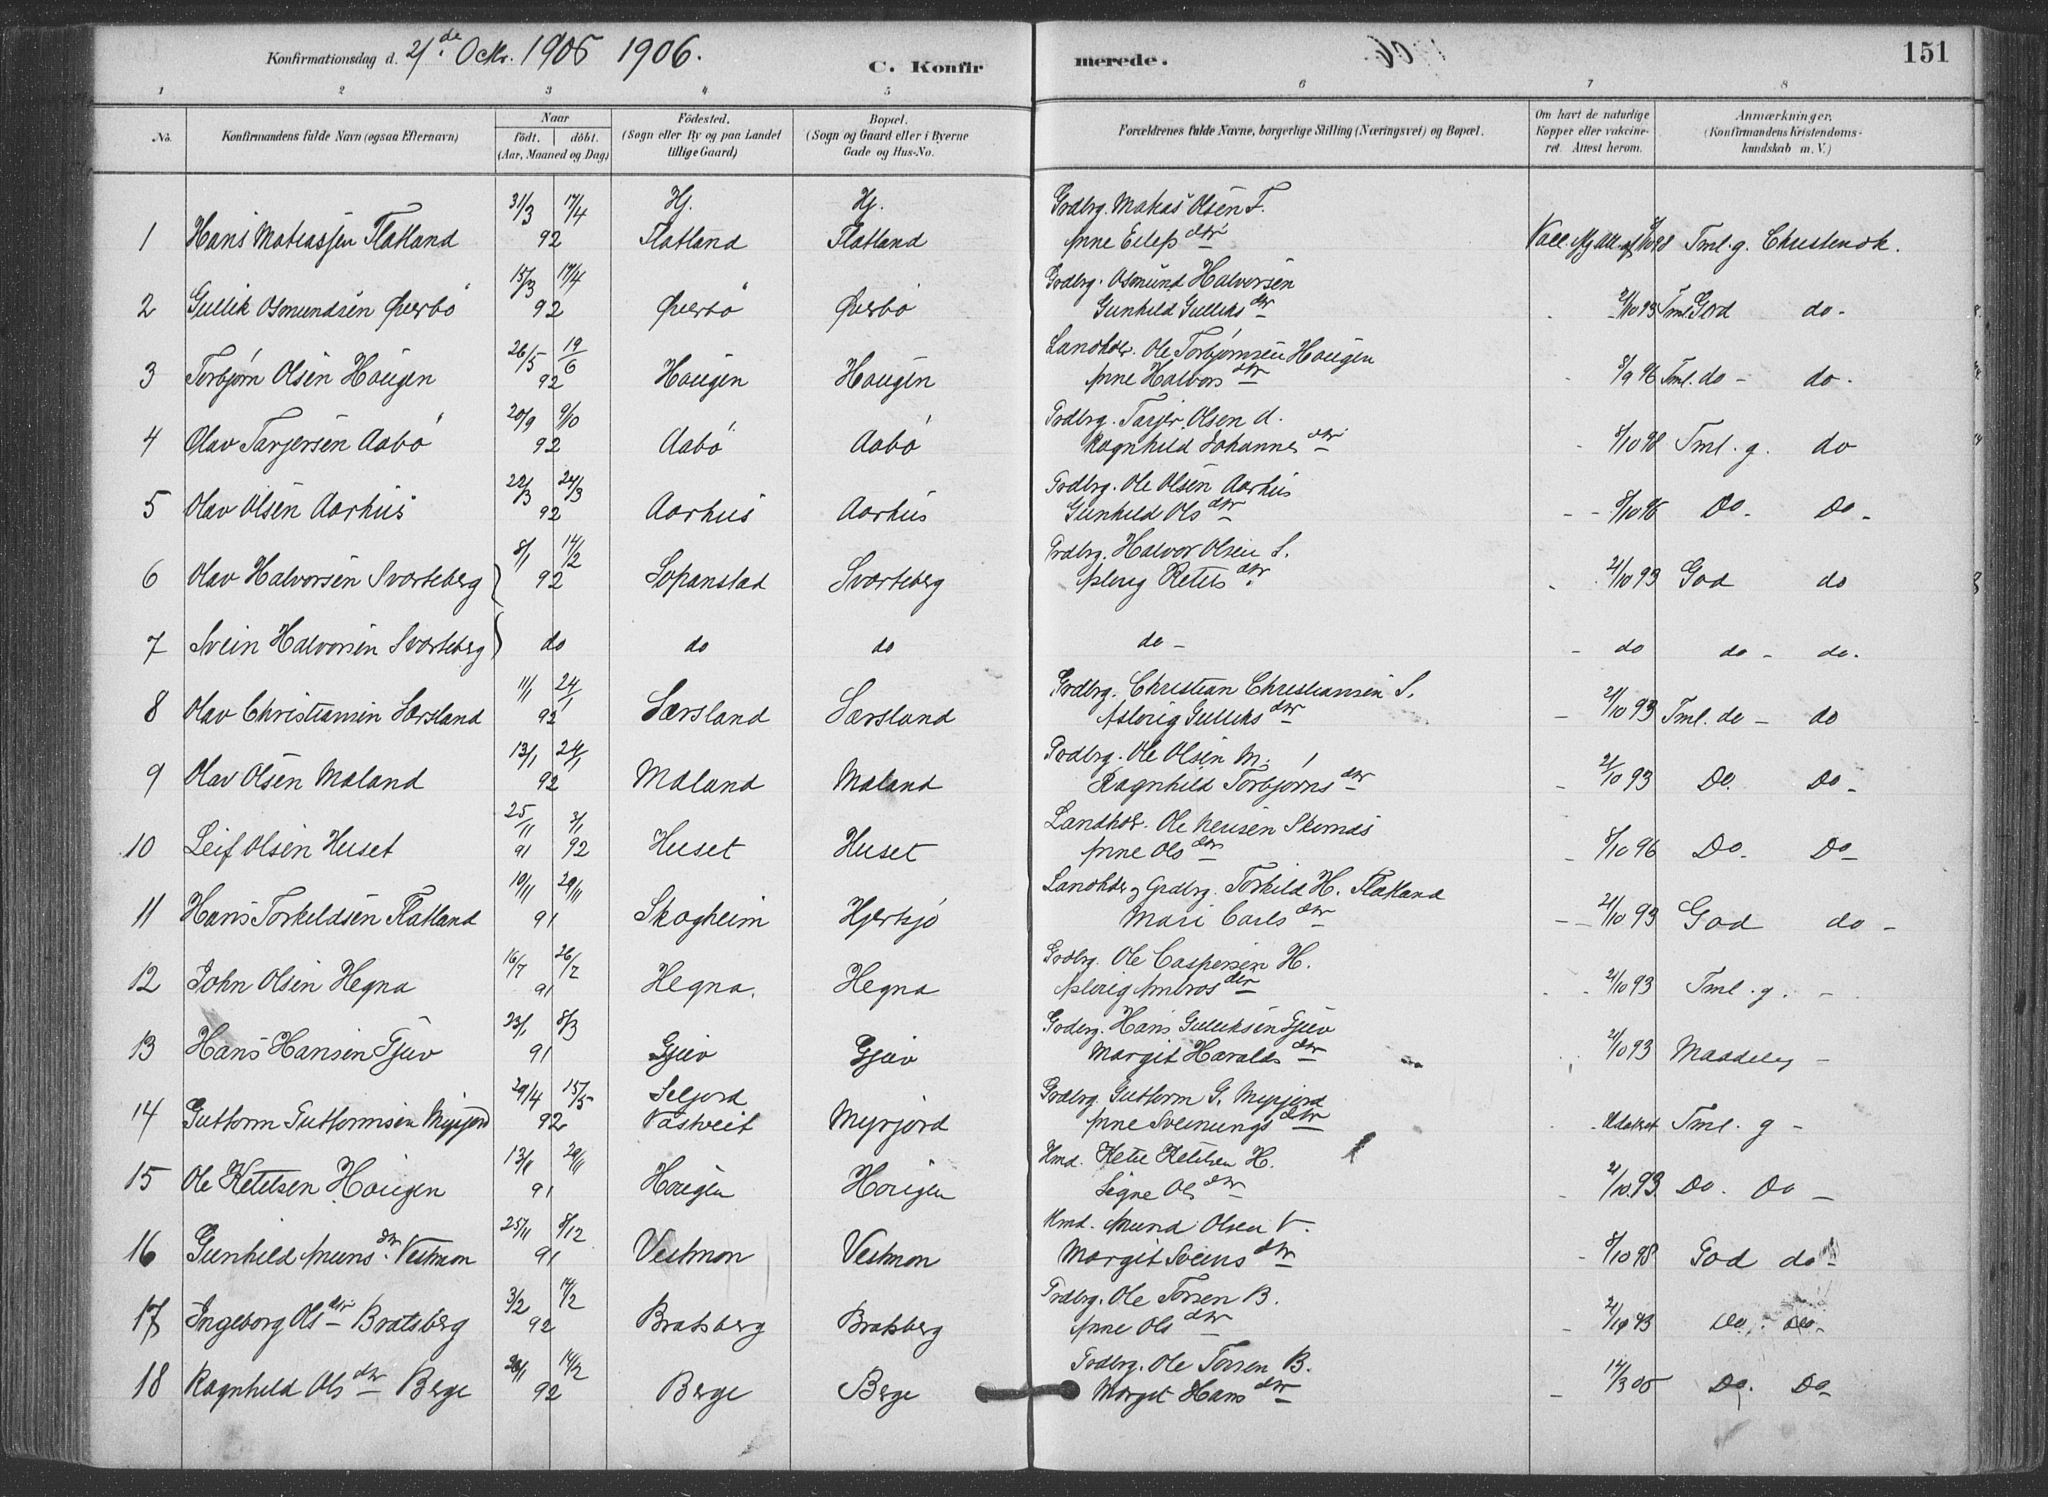 Konfirmationsdag d. 21.de Octbr. 1906 1906.
C. Konfirmerede.
151
1 2 3 4 5 6 7 8
No.
Konfirmandens fulde Navn (ogsaa Efternavn)
Naar
födt. döbt.
(Aar, Maaned og Dag)
Födested.
(Sogn eller By og paa Landet
tillige Gaard)
Bopæl.
(Sogn og Gaard eller i Byerne
Gade og Hus-No.
Forældrenes fulde Navne, borgerlige Stilling (Næringsvei) og Bopæl.
Om havt de naturlige
Kopper eller vakcine-
ret. Attest herom.
Anmærkninger.
(Konfirmandens Kristendoms-
kundskab m. V.)
31/3 17/4 Hj. Hj. Grdbrg. Matias Olsen F.
1 Hans Matiassen Flatland 92 Flatland Flatland Anne Eilefs dtr Tml. g. Christendk.
15/3 17/4 Grdbrg. Osmund Halvorsen
2 Gullik Osmundsen Øverbö 92 Øverbö Øverbö Gunhild Gulliks dtr 21/10 93 Tml. God do-
26/5 19/6 Landhdr. Ole Torbjørnsen Haugen
3 Torbjørn Olsen Haugen 92 Haugen Haugen Anne Halvors dtr 8/9 96 Tml. do - do.
20/9 9/10 Grdbrg. Tarjer Olsen A.
4 Olav Tarjersen Aabö 92 Aabö Aabö Ragnhild Johannes dtr 8/10 98 Tml. g. do
22/3 24/3 Grdbrg. Ole Olsen Aarhus
5 Olav Olsen Aarhus 92 Aarhus Aarhus Gunhild Ols dtr - - 8/10 98 Do. Do -
8/1 14/2 Grdbrg. Halvor Olsen S.
6 Olav Halvorsen Svarteberg 92 Sopanstad Svarteberg Aslaug Ketils dtr 21/10 93 God do
7 Svein Halvorsen Svarteberg do do do do - - do do - do.
11/1 24/1 Grdbrg. Christian Christiansen S.
8 Olav Christiansen Særsland 92 Særsland Særsland Aslaug Gulliks dtr - 21/10 93 Tml. do - do
13/1 24/1 Grdbrg. Ole Olsen M.
9 Olav Olsen Maland 92 Maland Maland Ragnhild Torbjørns dtr - 21/10 93 Do. Do -
25/11 3/1 Landhdr. Ole Neusen Skornes
10 Leif Olsen Huset 91 92 Huset Huset Anne Ols dtr - 8/10 96 Do. Do -
10/11 29/11 Landhdr og Grdbrg. Torkild H. Flatland
11 Hans Torkildsen Flatland 91 Skogheim Hjertsjö Mari Carls dtr - - 21/10 93 God do -
16/7 26/7 Grdbrg. Ole Caspersen H.
12 John Olsen Hegna 91 Hegna. Hegna Aslaug Ambros dtr 21/10 93 Tml. g. -
23/1 8/3 Grdbrg. Hans Gulliksen Gjuv
13 Hans Hansen Gjuv 91 Gjuv Gjuv Margit Haralds dtr 21/10 93 Maadelig -
29/4 15/5 Seljord Grdbrg. Guttorm G. Myrjord
14 Guttorm Guttormsen Myrjord 92 Vastveit Myrjord Anne Sveinungs dtr Tml. g -
Hmd. Ketil Ketilsen H.
15 Ole Ketilsen Haugen 91 Haugen Haugen Signe Ols dtr - 21/10 93 Do. Do -
25/11 8/12 Hmd. Amund Olsen V.
16 Gunhild Amuns dtr. Vestmon 91 Vestmon Vestmon Margit Sveins dtr - 8/10 98 God do -
3/2 14/2 Grdbrg. Ole Torsen B.
17 Ingeborg Ols dtr Bratsberg 92 Bratsberg Bratsberg Anne Ols dtr - 21/10 93 Do. Do -
14/2 Grdbrg. Ole Torsen B.
18 Ragnhild Ols dtr Berge 92 Berge Berge Margit Hans dtr - 14/3 05 Do. Do -